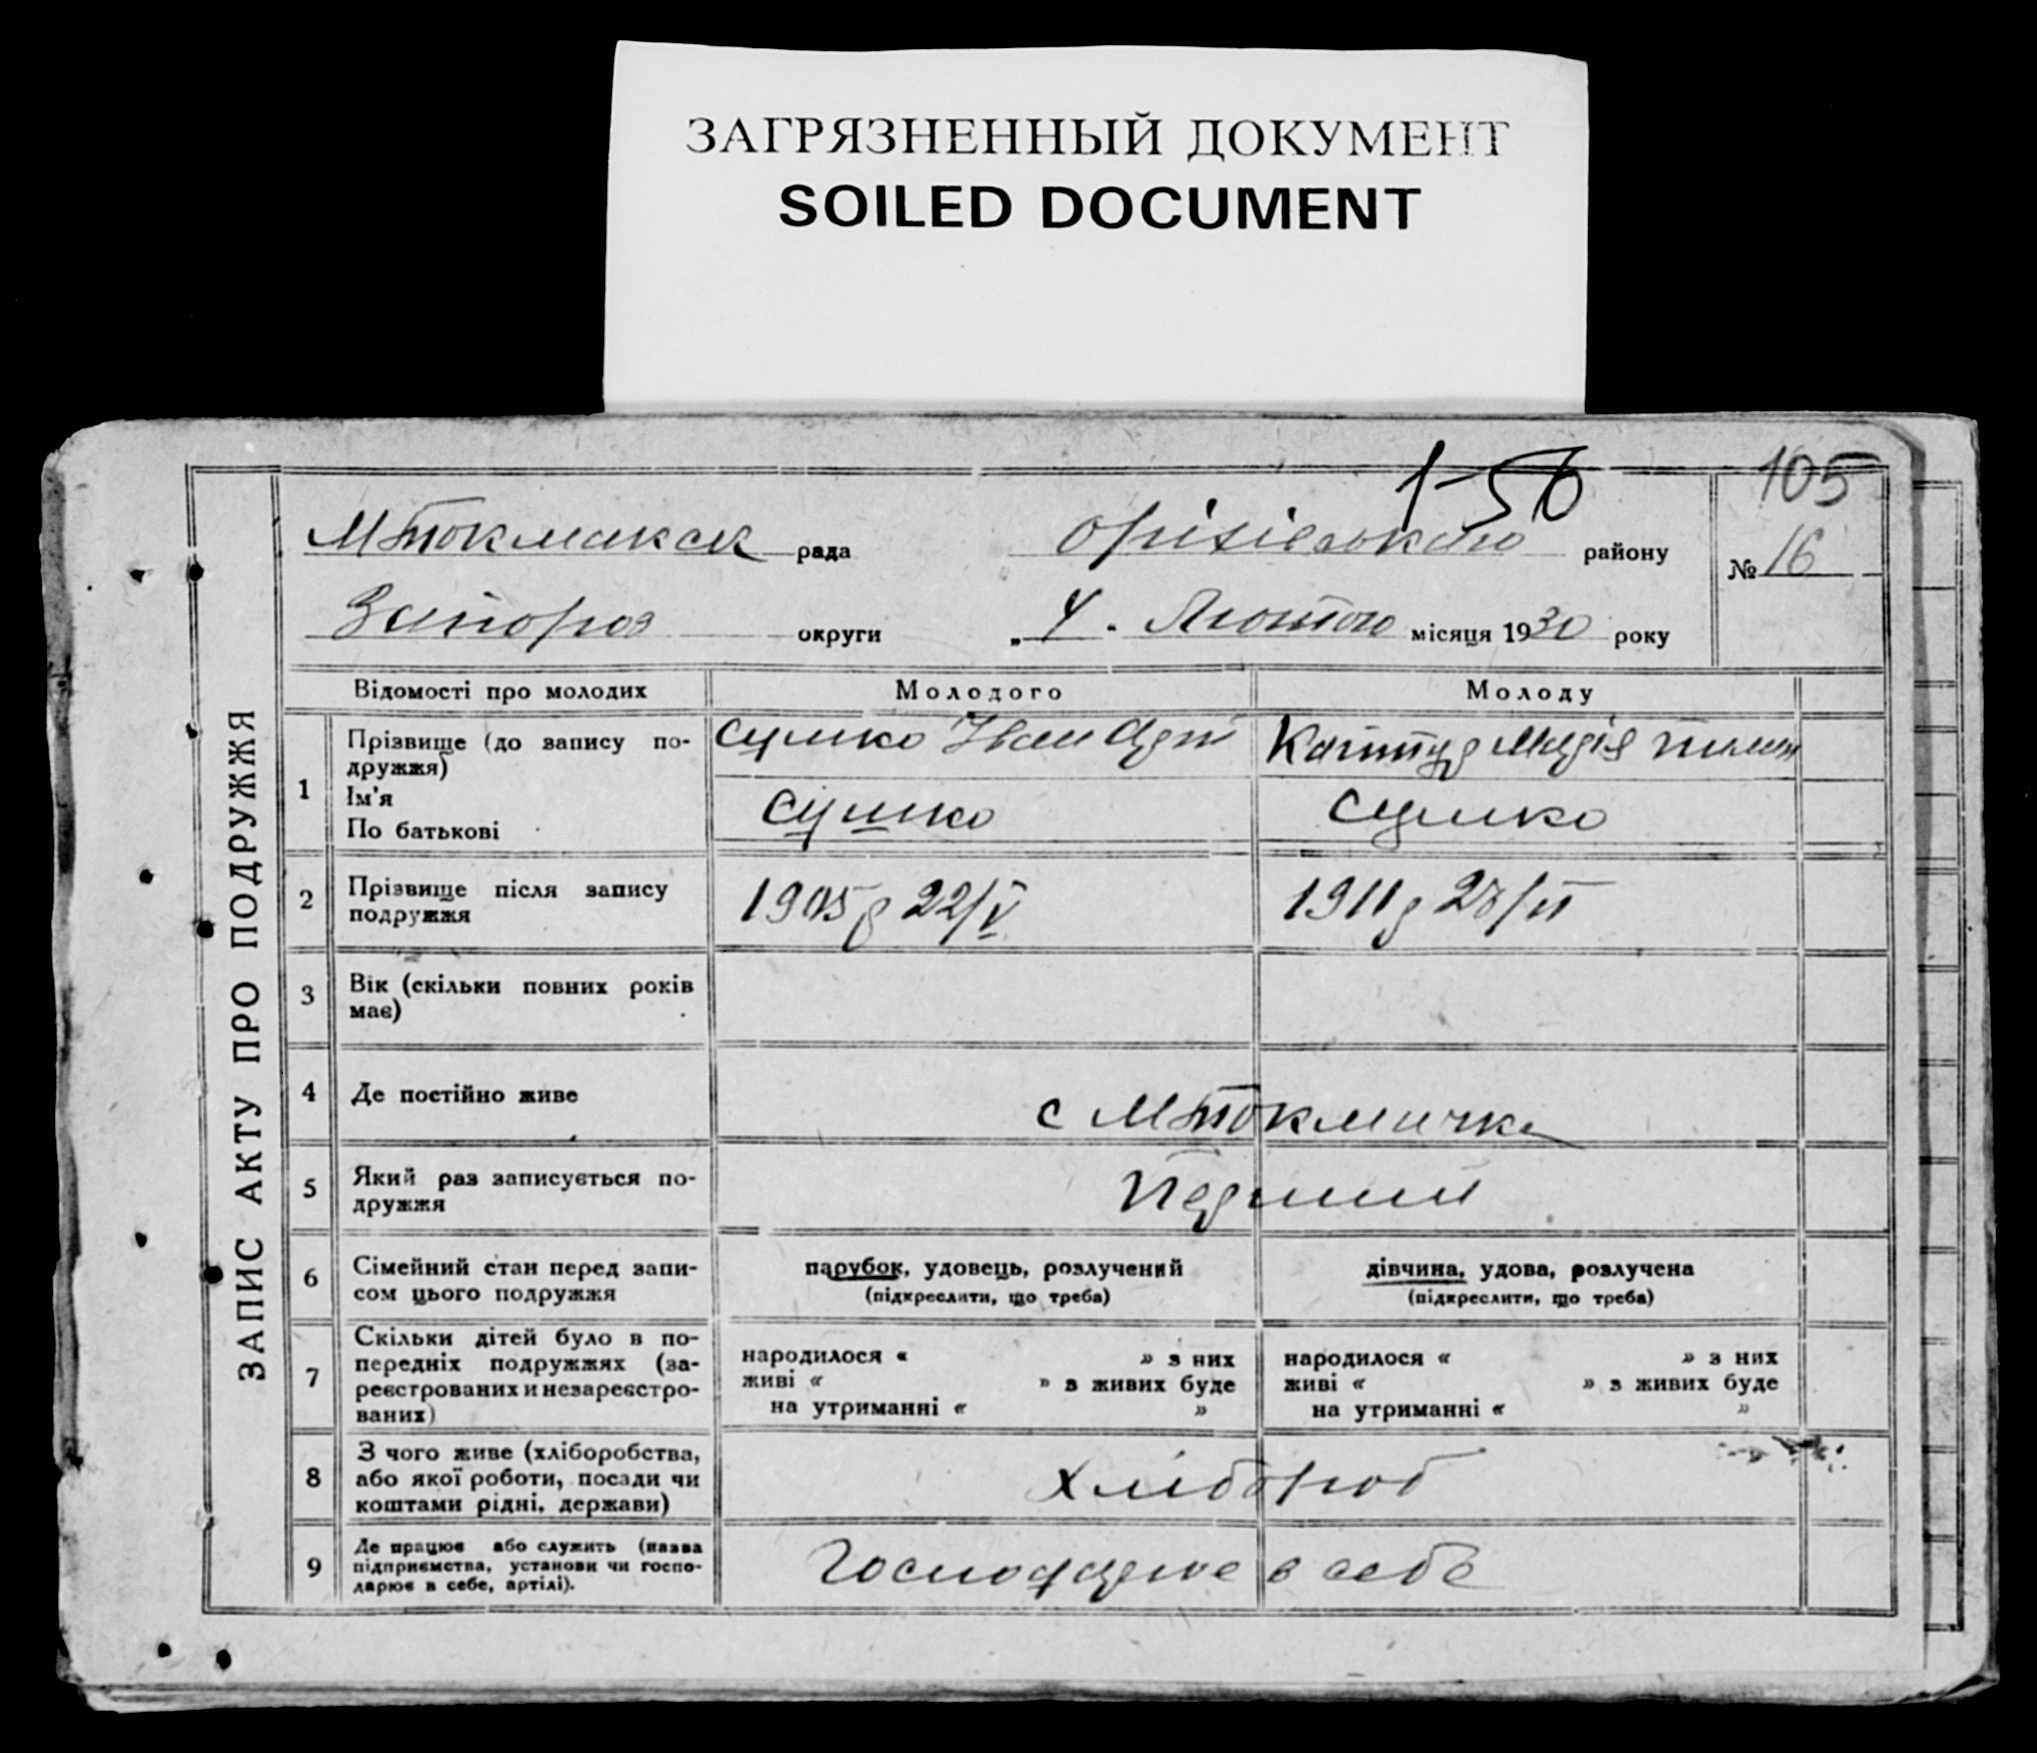 ЗАГРЯЗНЕННЫЙ ДОКУМЕНТ
SOILED DOCUMENT
1-56
105
МТокмакск рада Оріхівського району
№ 16
Запороз округи „4. Лютого місяця 1930 року
ЗАПИС АКТУ ПРО ПОДРУЖЖЯ
Відомості про молодих Молодого Молоду
1 Прізвище (до запису по-
дружжя)
Ім'я
По батькові
Сушко Іван
Марія
Сушко
Сушко
2 Прізвище після запису
подружжя
1905р 22/V
1911р
3 Вік (скільки повних років
має)
4 Де постійно живе
с МТокмачка
5 Який раз записується по-
дружжя
Перший
6 Сімейний стан перед запи-
сом цього подружжя
парубок, удовець, розлучений
(підкреслити, що треба)
дівчина, удова, розлучена
(підкреслити, що треба)
7 Скільки дітей було в по-
передніх подружжях (за-
реєстрованих и незареєстро-
ваних)
народилося « » з них
живі « » з живих буде
на утриманні « »
народилося « » з них
живі « » з живих буде
на утриманні « »
8 З чого живе (хліборобства,
або якої роботи, посади чи
коштами рідні, держави)
Хлібороб
9 Де працює або служить (назва
підприємства, установи чи госпо-
дарює в себе, артілі).
Господарює в себе